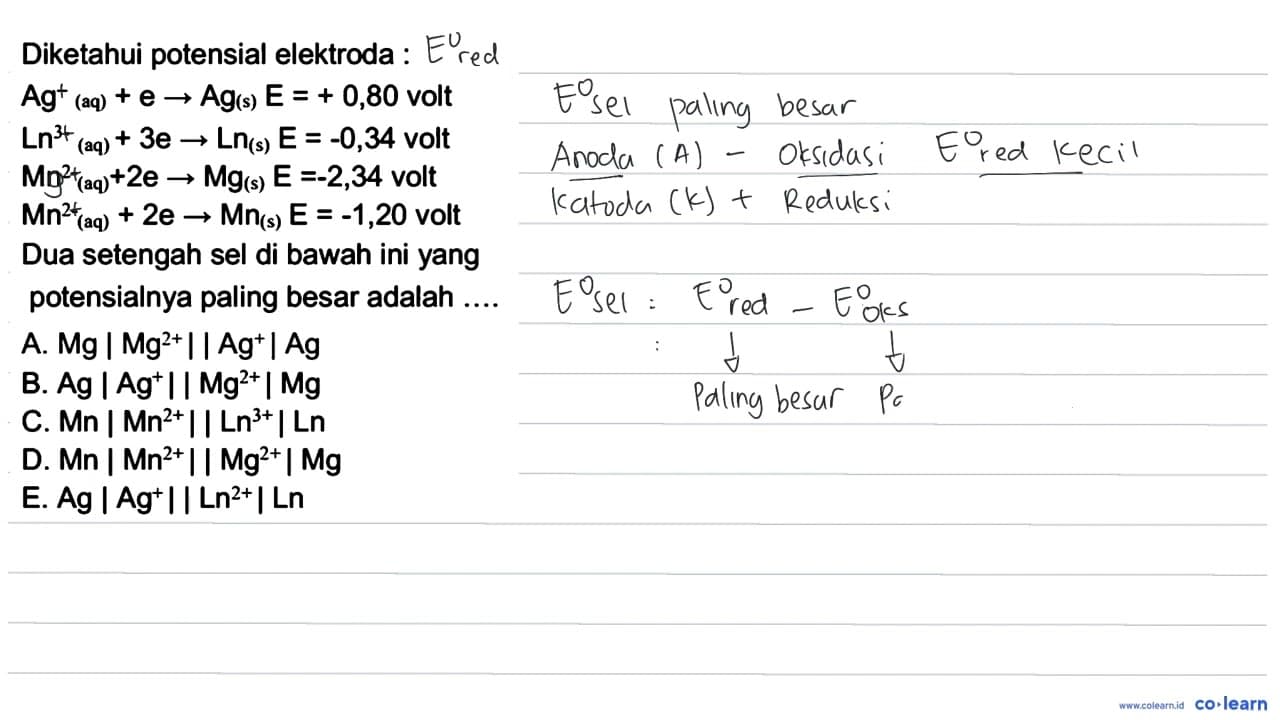 Diketahui potensial elektroda : E⁰red
Ag⁺ (aq) + e → Ag(s) E = + 0,80 volt
Ln³⁺ (aq) + 3e → Ln(s) E = -0,34 volt
Mg²⁺(aq)+2e → Mg(s) E =-2,34 volt
Mn²⁺(aq) + 2e → Mn(s) E = -1,20 volt
Dua setengah sel di bawah ini yang
potensialnya paling besar adalah ....
A. Mg | Mg²⁺ | | Ag⁺ | Ag
B. Ag | Ag⁺ | | Mg²⁺ | Mg
C. Mn | Mn²⁺ | | Ln³⁺ | Ln
D. Mn | Mn²⁺ | | Mg²⁺ | Mg
E. Ag | Ag⁺ | | Ln²⁺ | Ln
E⁰sel paling besar
Anoda (A) - Oksidasi E⁰red kecil
Katoda (K) + Reduksi
E⁰sel : E⁰red - E⁰oks
: ↓ ↓
Paling besar Pa
www.colearn.id co·learn